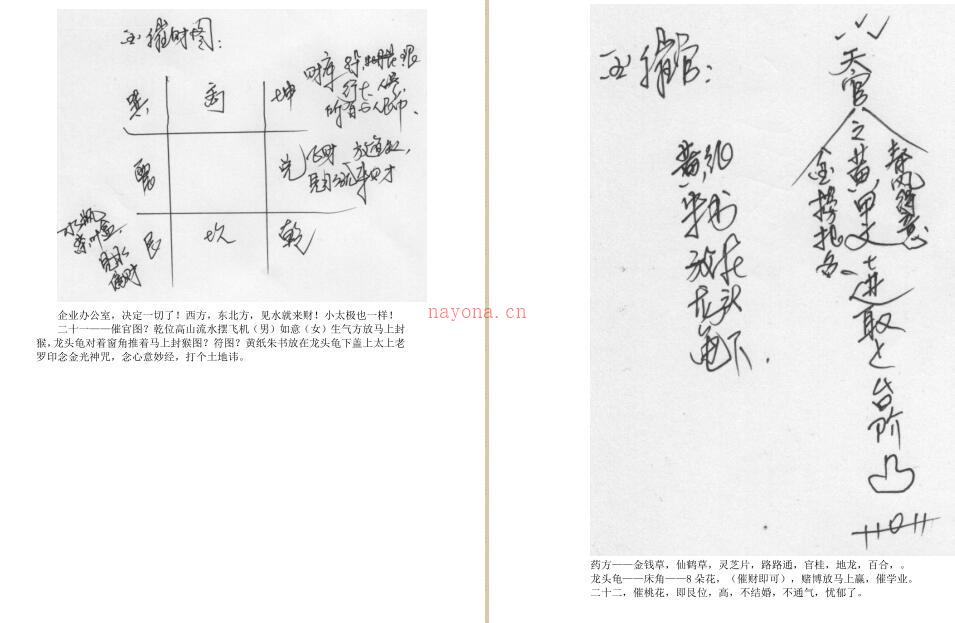 催财图：
巽
离
坤
震
兑
艮
坎
乾
财库
飞财 放鱼缸，
水瓶
茶叶盒
见水
偏财
企业办公室，决定一切了！西方，东北方，见水就来财！小太极也一样！
二十一——催官图？乾位高山流水摆飞机（男）如意（女）生气方放马上封
猴，龙头龟对着窗角推着马上封猴图？符图？黄纸朱书放在龙头龟下盖上太上老
罗印念金光神咒，念心意妙经，打个土地讳。
nayona.cn
催官：
黄纸
朱书
放在
龙头
龟下.
天官
之黄甲文
春风得意
金榜提名
进取之台阶
药方——金钱草，仙鹤草，灵芝片，路路通，官桂，地龙，百合，。
龙头龟——床角——8 朵花，（催财即可），赌博放马上赢，催学业。
二十二，催桃花，即艮位，高，不结婚，不通气，忧郁了。